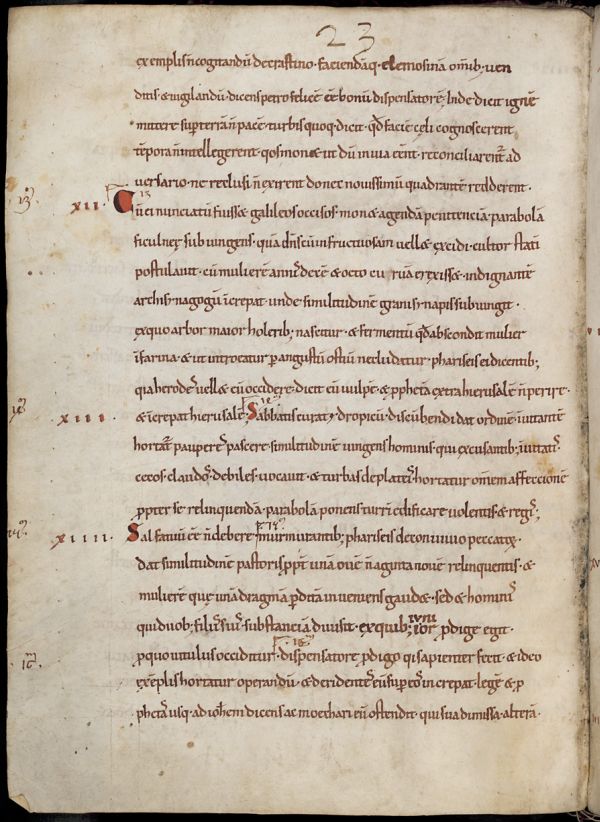 23
exemplis n̄ cogitandū de crastino · faciendāq· elemosinā om̄ib; ven
ditis & uigilandū · dicens petro felicē e͞e bonū dispensatorē · Inde dicit ignē
mittere sup terrā n̄ pacē · turbis quoq· dicit · qđ faciē cęli cognoscerent
tēpora n̄ intellegerent · quos mon& ut dū in uia e͞ent · reconciliarent᷑ ad
uersario · ne reclusi n̄ exirent donec nouissimū quadrantē redderent ·
13
xii · Cū ei nunciatū fuiss& galileos occisos · mon& agendā penitenciā · parabolā
ficulneę subiungens · quā dn̄s cū infructuosam uell& excidi · cultor stati
postulauit · cū mulierē annis decē & octo curuā erexiss& · indignantē
archisynagogū īcrepat · unde similitudinē granis synapis subiungit ·
ex quo arbor maior holerib; nascitur · & fermentū qđ abscondit mulier
ī farina · & ut introeatur p angustū ostiū ne cludatur · phariseis ei dicentib;
quia herodes uell& eū occidere · dicit eū uulpē · & pphetā extra hierusalē n̄ perire ·
xiii · & īcrepat hierusalē · Sabbatis curat ydropicū · discūbendi dat ordinē · īuitantē
hortat᷑ pauperes pascere · similitudinē iungens hominis qui excusantib; īuitatis
cecos · claudos · debiles · uocauit · & turbas de plateis hortatur om̄em affeccionē
ppter se relinquendā · parabolā ponens turri edificare uolentis & regis ·
xiiii · Sal fatuū e͞e n̄ debere · murmurantib; phariseis de conuiuio peccatoꝝ ·
dat similitudinē pastoris ppt᷑ unā ouē n̄aginta nouē relinquentis · &
mulierē quę unā dragmā pditā inueniens gaud& · sed & hominis
qui duob; filiis suis substanciā diuisit · ex quib; iunior pdige egit ·
p quo uitulus occiditur · dispensatorē pdigo qi sapienter fecit · & ideo
exēplis hortatur operandū · & deridentes eū sup et᷑o increpat · legē & p
ph&as usq· ad ioh̄em dicens ac moechari eū ostendit · qui sua dimissa · alterā ·